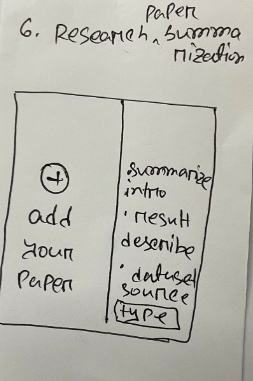 6. Research paper summa
rization
+
add
your
paper
summarize
intro
• result
describe
• dataset
source
type